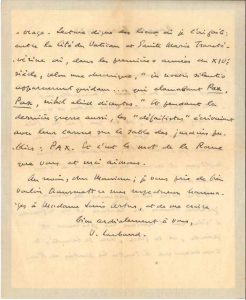 vrage. Lecture digne des lieux où je l'ai faite:
entre la Cité du Vatican et Sainte Marie Transté-
vérine où, dans les premières années du XIIIe
siècle, selon une chronique, "in noctis silentio
apparuerunt quidam ... qui clamabant Pax,
Pax, nihil aliud dicentes." Et pendant la
dernière guerre aussi, les "défaitistes" écrivaient
avec leur canne sur le sable des jardins pu-
blics: PAX. Et c'est le mot de la Rome
que vous et moi aimons.
Au revoir, cher Monsieur; je vous prie de bien
vouloir transmettre mes respectueux homma-
ges à Madame Louis Artus, et de me croire
bien cordialement à vous,
V. Larbaud.